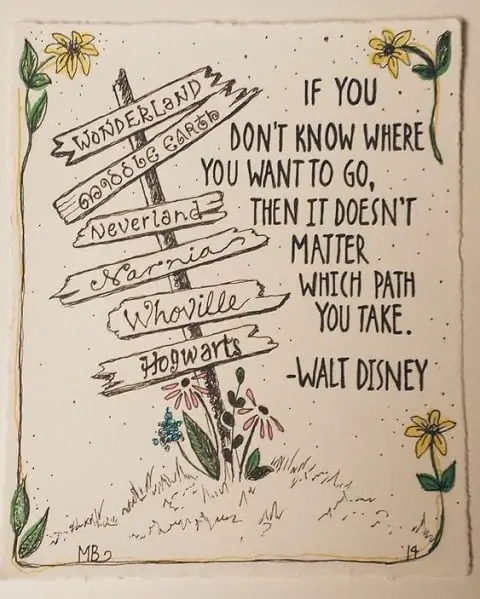 WONDERLAND
MIDDLE EARTH
Neverland
Narnia
Whoville
Hogwarts
IF YOU
DON'T KNOW WHERE
YOU WANT TO GO,
THEN IT DOESN'T
MATTER
WHICH PATH
YOU TAKE.
-WALT DISNEY
MB
19